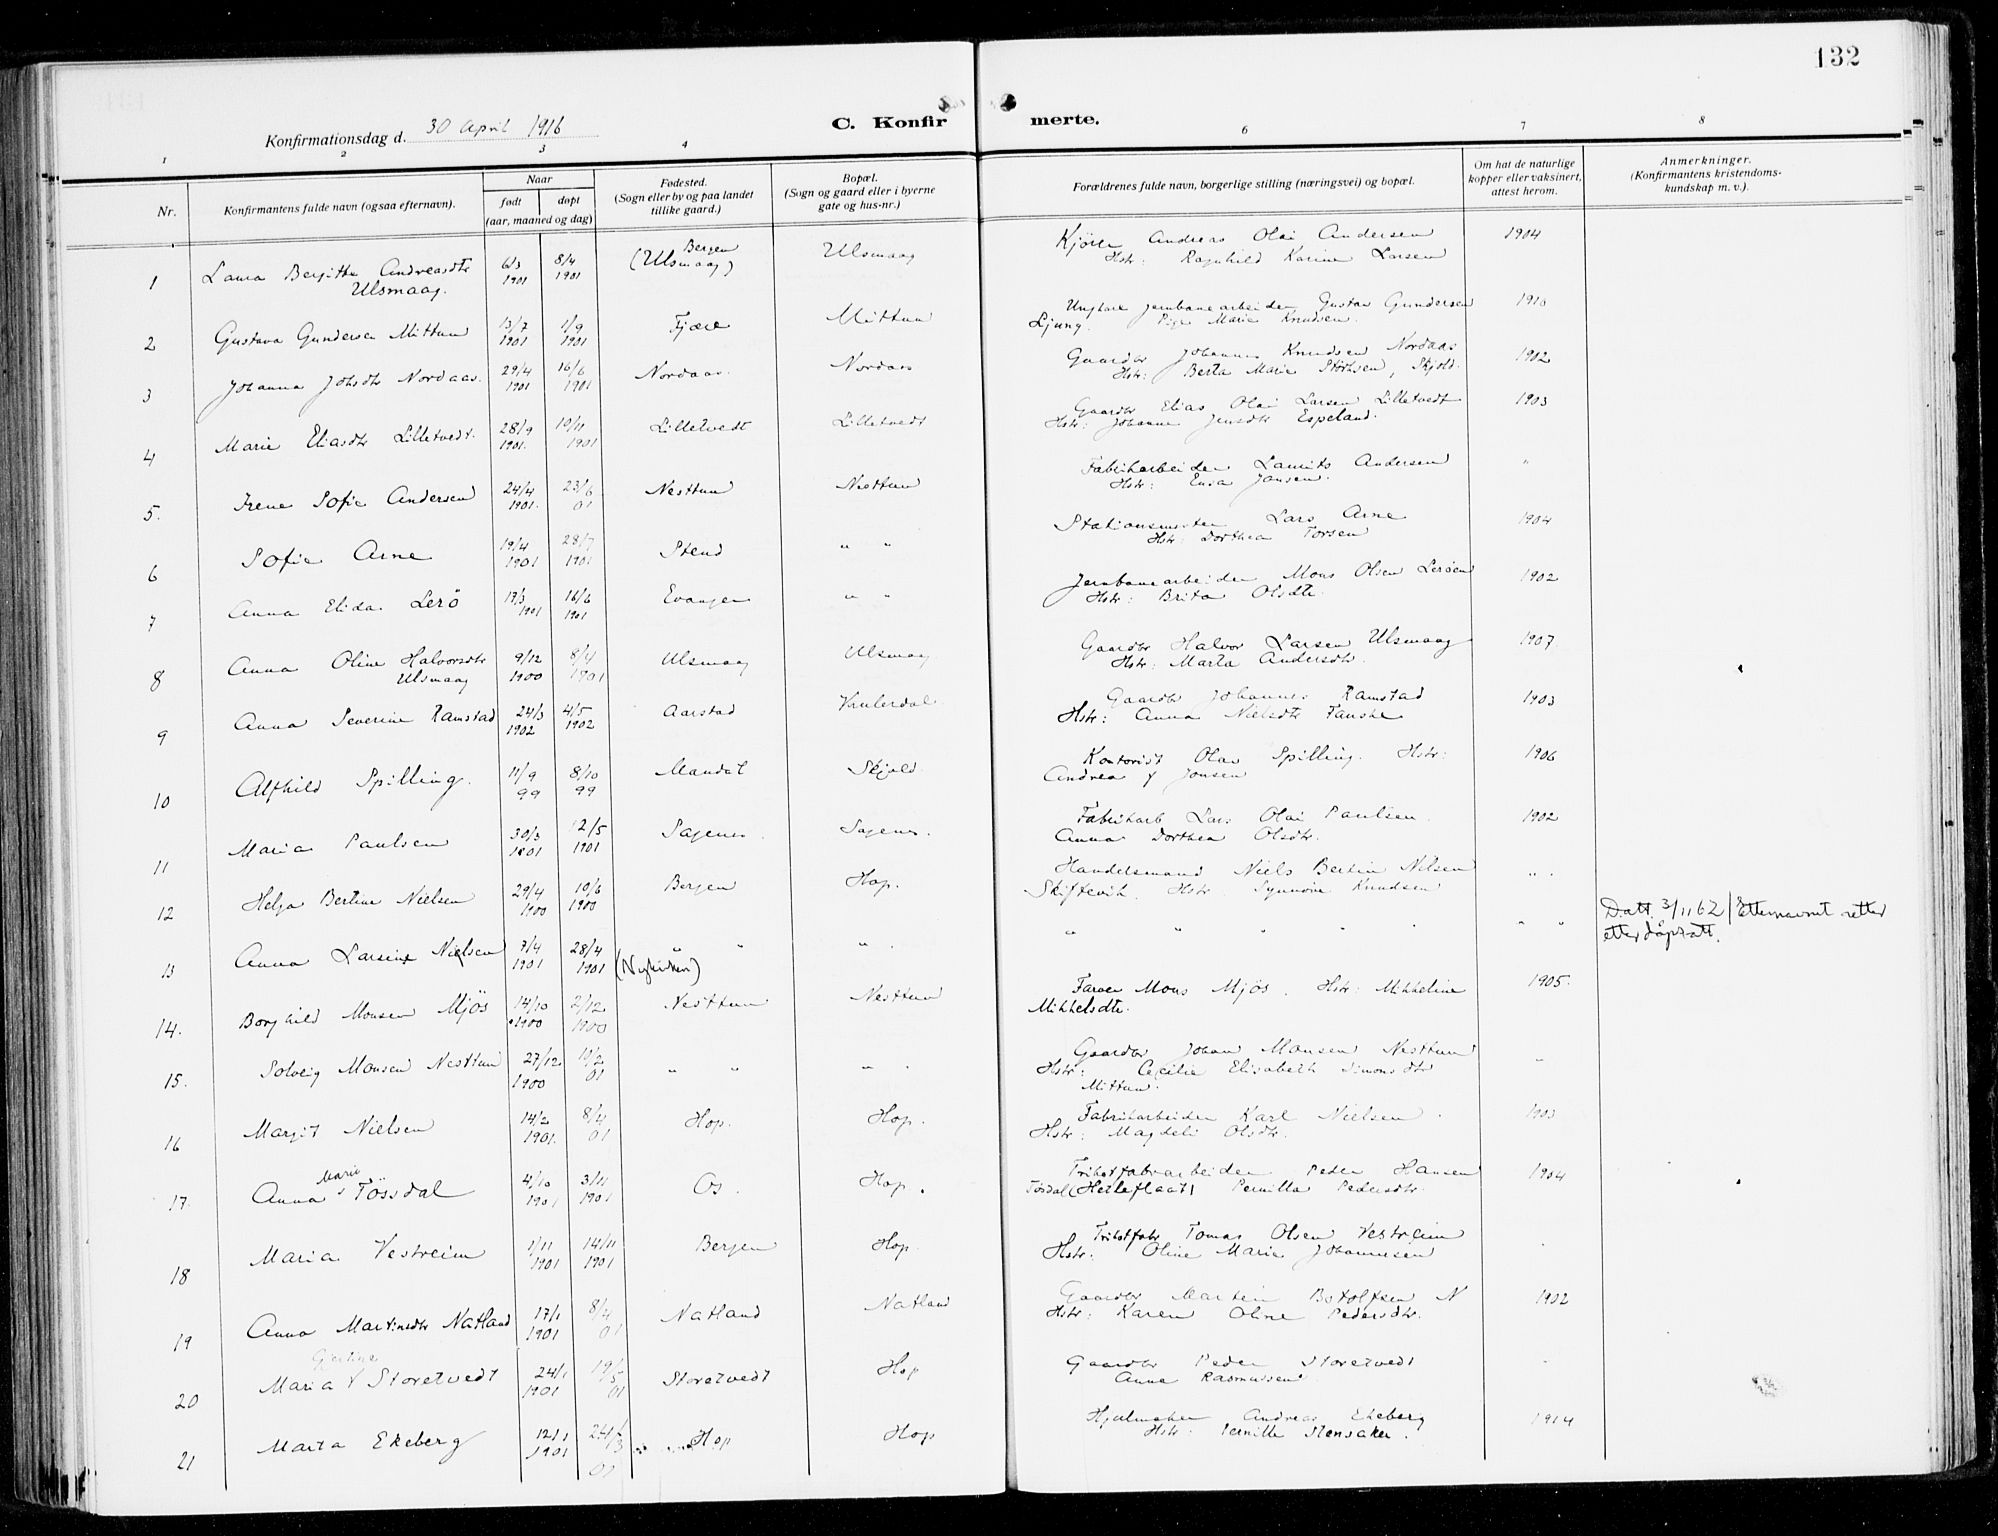 132
Konfirmationsdag d. 30 April 1916
C. Konfirmerte.
1 2 3 4 6 7 8
Nr.
Konfirmantens fulde navn (ogsaa efternavn).
Naar
født døpt
(aar, maaned og dag)
Fødested.
(Sogn eller by og paa landet
tillike gaard.)
Bopæl.
(Sogn og gaard eller i byerne
gate og hus-nr.)
Forældrenes fulde navn, borgerlige stilling (næringsvei) og bopæl.
Om hat de naturlige
kopper eller vaksinert,
attest herom.
Anmerkninger.
(Konfirmantens kristendoms-
kundskap m. v.).
1 Laura Bergitte Andreasdtr 6/3 1901 8/4 1901 Bergen Ulsmaag Kjörer Andreas Olai Andersen 1904
Ulsmaag. (Ulsmaag) Hstr: Ragnhild Karine Larsen
2 Gustava Gundersen Mittun 13/7 1901 1/9 1901 Fjære Mittun Ungkar Jernbanearbeider Gustav Gundersen 1910
Ljung. Pige Marie Knudsen.
3 Johanna Johsdtr Nordaas. 29/4 1901 16/6 1901 Nordaas. Nordaas Gaardbr Johannes Knudsen Nordaas 1902
Hstr: Berta Marie Skjold.
4 Marie Eliasdtr Lilletvedt. 28/9 1901. 10/11 1901 Lilletvedt Lilletvedt Gaardbr Elias Olai Larsen Lilletvedt 1903
Hstr: Johanne Jensdtr Espeland.
5. Irene Sofie Andersen 24/4 1901. 23/6 01 Nesttun Nesttun Fabrikarbeider Laurits Andersen "
Hstr: Jansen.
6 Sofie Arne 19/4 1901 28/7 1901 Stend " " Stationsmester Lars Arne 1904
Hstr: Dorthea Torsen
7 Anna Elida Lerö 17/3 1901 16/6 1901 Evanger " " Jernbanearbeider Mons Olsen Leröen 1902
Hstr: Brita Olsdtr.
8 Anna Oline Halvorsdtr 9/12 1900 8/4 1901 Ulsmaag Ulsmaag Gaardbr Halvor Larsen Ulsmaag 1907
Ulsmaag Hstr: Marta Andersdtr.
9 Anna Severine Ramstad 24/3 1902 4/5 1902 Aarstad Gaardbr Johannes Ramstad 1903
Hstr: Anna Nielsdtr Fanske
10 Alfhild Spilling. 11/9 99 8/10 99 Mandal Skjold. Kontorist Olav Spilling. Hstr: 1906
Andrea f Jonsen
11 Maria Paulsen 30/3 1901 12/5 1901 Sagenes. Sagenes. Fabrikarb Lars Olai Paulsen. 1902
Anna Dorthea Olsdtr.
12 Helga Bertine Nielsen 29/4 1900 10/6 1900 Bergen Hop. Handelsmand Niels Bertin Nilsen " .
Skiftevik. Hstr Synnöve Knudsen
13 Anna Larsine Nielsen 7/4 1901 28/4 1901 " " " . " " " " " " " D.att. 3/1162 / Etternavnet rettet
(Nykirken) etter dåpsatt.
14. Borghild Monsen Mjös 14/10 1900 2/12 1900 Nesttun Nesttun Farver Mons Mjös. Hstr: Mikkeline 1905.
Mikkelsdtr.
15. Solveig Monsen Nesttun 27/12 1900 10/2 01 " " " . Gaardbr Johan Monsen Nesttun "
Hstr: Cecilie Elisabeth Simonsdtr
Mittun.
16 Margit Nielsen 14/2 1901. 8/4 01 Hop. Hop. Fabrikarbeider Karl Nielsen 1903
Hstr: Magdeli Olsdtr.
17. Anna Marie Tössdal 4/10 1901 3/11 1901 Os. Hop. Trikotfabrarbeider Peder Hansen 1904
Tösdal (Helleflaat) Pernilla Pedersdtr.
18 Maria Vestreim 1/11 1901 14/11 1901 Bergen Hop. Trikotfabr Tomas Olsen Vestreim
Hstr: Oline Marie Johannesen
19 Anna Martinsdtr Natland 17/1 1901 8/4 01 Natland Natland Gaardbr Martin Botolfsen N 1902
Hstr: Karen Oline Pedersdtr.
20 Maria Gjertine Storetvedt 24/1 1901 19/5 01 Storetvedt Hop Gaardbr Peder Storetvedt
Anne Rasmussen
21 Marta Ekeberg 12/1 1901 24/3 01 Hop Hop Hjulmaker Andreas Ekeberg 1914
Hstr. Pernille Stensaker.